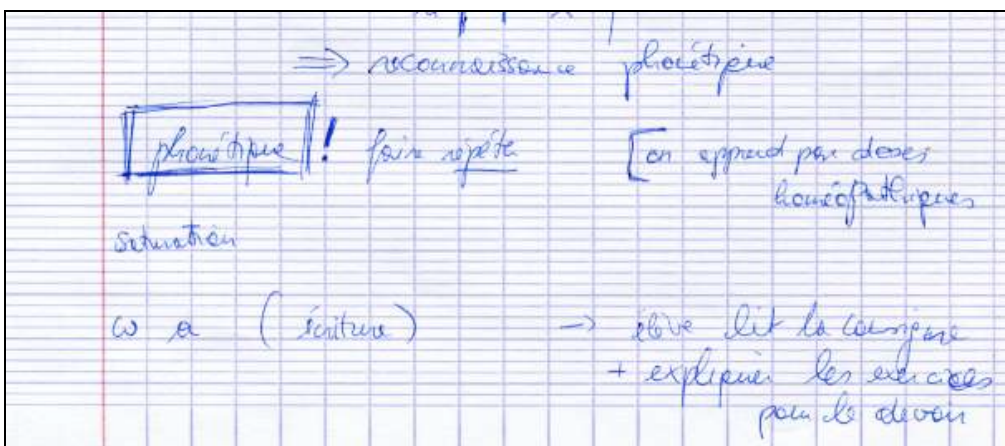 ⇒ reconnaissance phonétique
phonétique ! faire répéter [on apprend par doses
homéopathiques
saturation
ω a (écriture) → élève lit la consigne
+ expliquer les exercices
pour le devoir